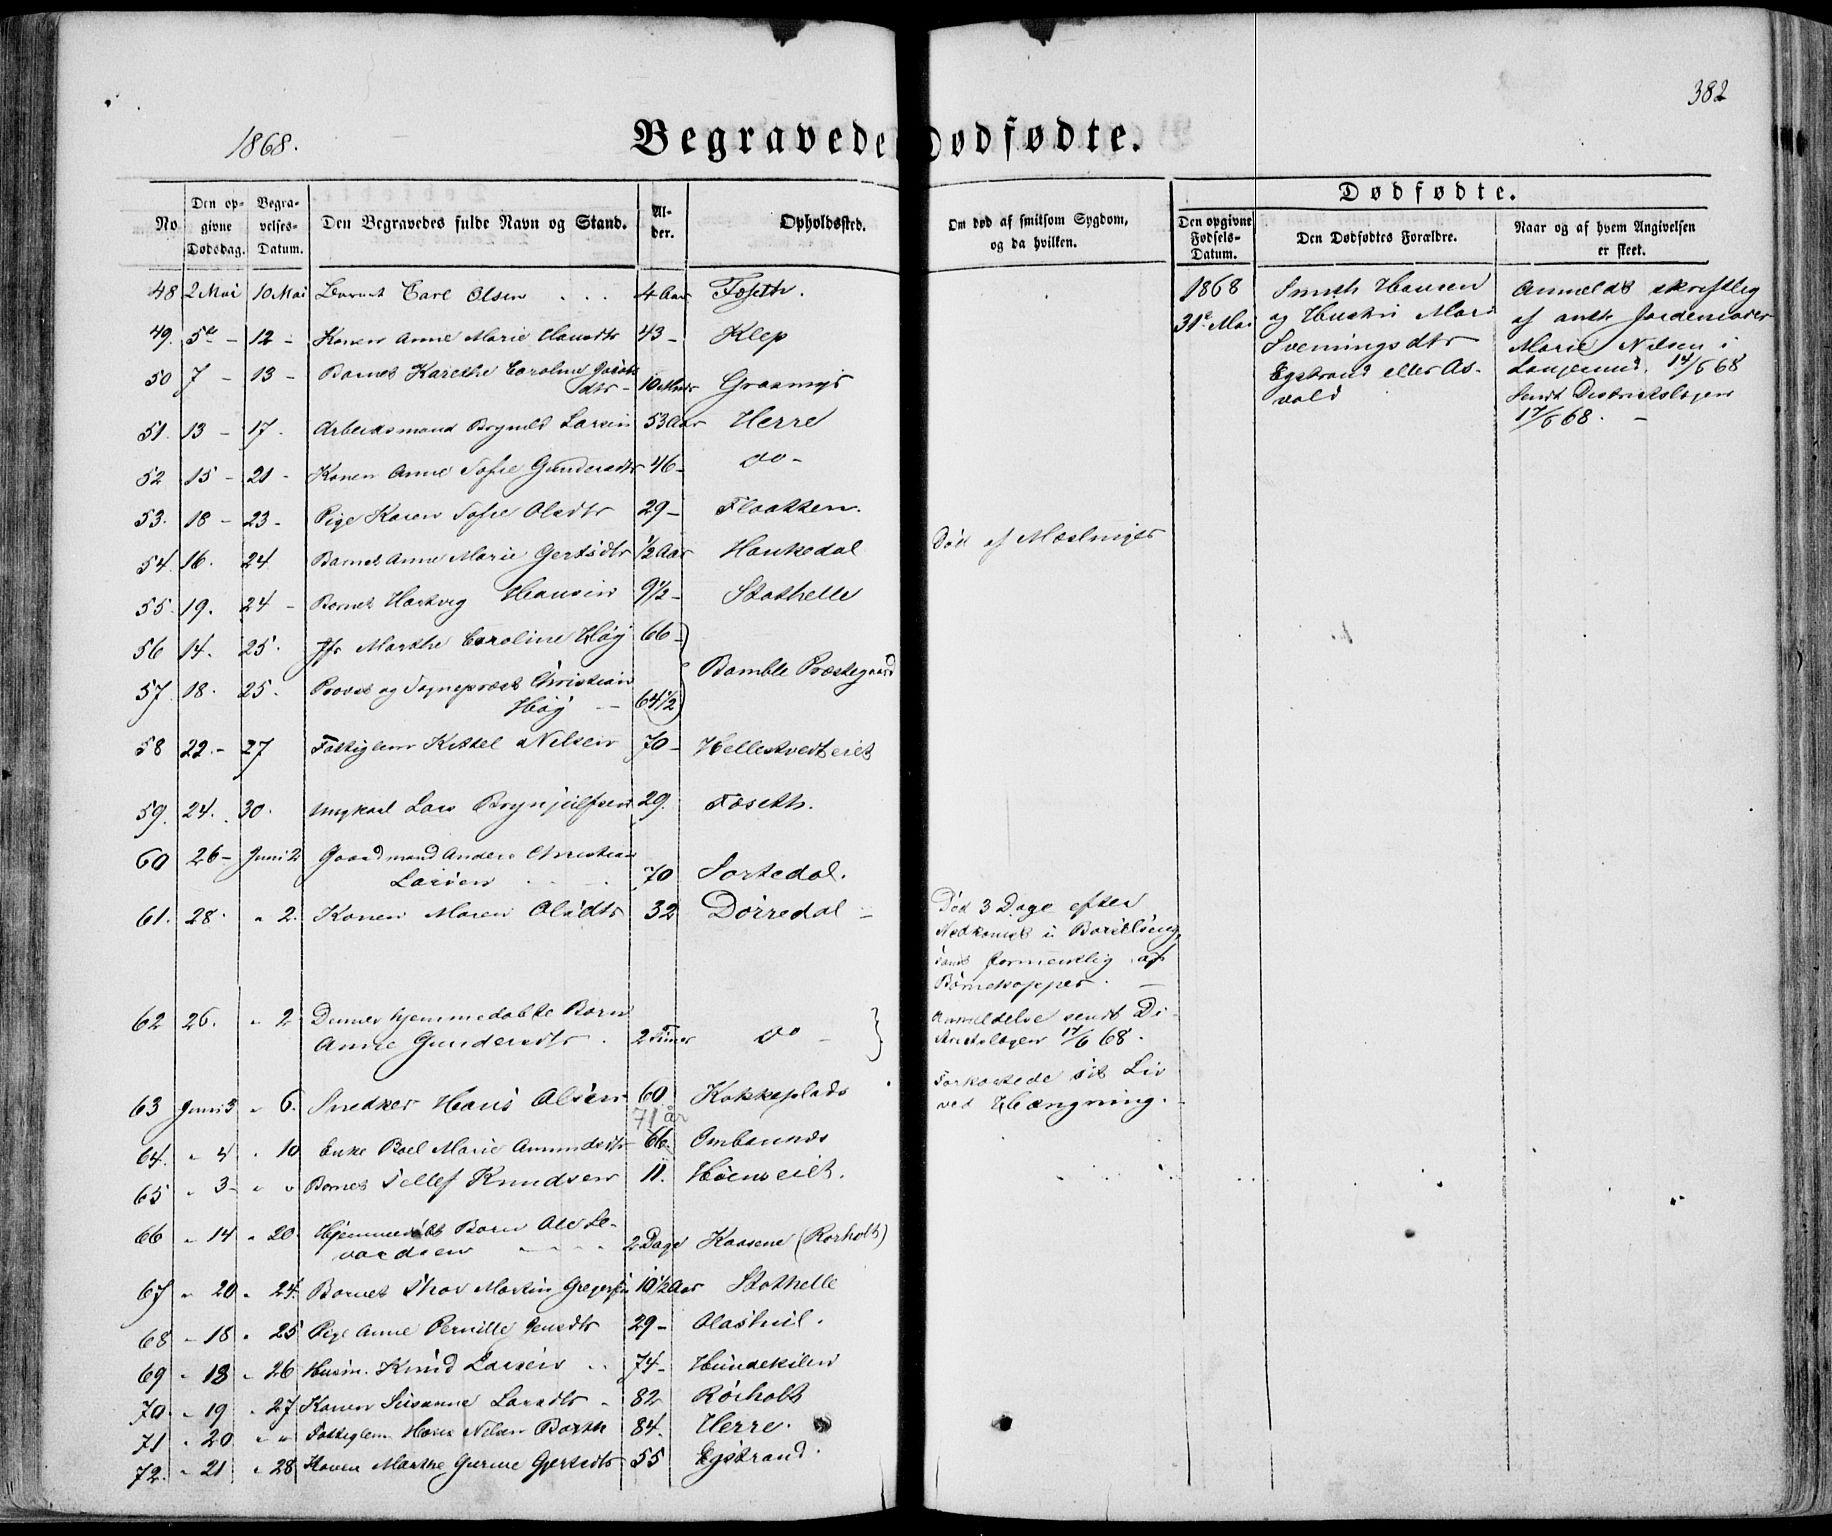 382
1868.
Begravede Dødfødte.
Dødfødte.
No
Den op-
givne
Dødsdag.
Begra-
velses-
Datum.
Den Begravedes fulde Navn og Stand.
Al-
der.
Opholdssted.
Om død af smitsom Sygdom,
og da hvilken.
Den opgivne
Fødsels-
Datum.
Den Dødfødtes Forældre.
Naar og af hvem Angivelsen
er skeet.
48 2 Mai 10 Mai Barnet Carl Olsen 4 Aar Foseth.
49. 5te - 12 - Konen Anne Marie Hansdtr 43 - Klep
50 7 - 13 - Barnet Karethe Caroline Jacobs
dtr - 10 Mndr Grasmyr
51. 13 - 17. Arbeidsmand Brynild Larsen 53 Aar Herre
52 15 - 21 - Konen Anne Sofie Gundersdtr 46 - do -
53. 18 - 23 - Pige Karen Sofie Olsdtr 29 - Flaatten.
54. 16. 24 Barnet Anne Marie Gertsdtr 1/2 Aar Haukedal Død af Mæslinger
55. 19. 24 - Barnet Hartvig Hansen 9 1/2 - Stathelle
56 14. 25. Jfr Marthe Caroline Høg 66 -
57. 18. 25. Provst og Sognepræst Christian
Høg - 64 1/2 Bamble Præstegaard
58 22. - 27 Fattiglem Kittel Nilsen 70 - Hellestvedteiet
59. 24. 30. Ungkarl Lars Brynjulfsen 29. Foseth.
60 26 - Juni 2 Gaardmand Anders Christian
Larsen 70 Sortedal.
61. 28. " 2. Konen Maren Olsdtr 32 Dørredal -
Død 3 Dage efter
Nedkomst i Barselseng,
formentlig af
Børnekopper. -
62 26. " 2 Dennes hjemmedøbte Barn
Anne Gundersdtr. 2 Timer do -
Anmeldelse sendt Di-
strictslægen 17/6 68.
63 Juni 3 " 6. Snedker Hans Olsen 60 Kokkeplads
Forkortede sit Liv
ved Hængning. -
71 år
64. " 4 " 10 Enke Boel Marie Amundsdtr 66. Ombsnæs
65 " 3 - " " Barnet Tellef Knudsen 11. Høenseiet.
66 " 14 " 20. Hjemmedøbt Barn Ole Le-
vordsen 2 Dage Kaasene (Rørholt)
67 " 20 " 24. Barnet Thor Martin Gregersen 10 1/2 Aar Stathelle
68 - 18 " 25 Pige Anne Pernille Jensdtr 29 - Olashul.
69 " 18 " 26 Husm. Knud Larsen 74 - Hundekilen
70. " 19 " 27 Konen Susanne Larsdtr - 82 Rørholt
71 " 20 " " Fattiglem Hans Nilsen Barth 84. Herre.
72. " 21 " 28 Konen Marthe Gurine Gjertsdtr 55 Egstrand.
1868
31te Mai
Smith Hansen
og Hustru Mari
Sveningsdtr
Egstrand eller As-
vold
Anmeldt skriftlig
af ants. Jordemoder
Marie Nilsen i
Langesund. 14/6 68
Sendt Districtslægen
17/6 68. -